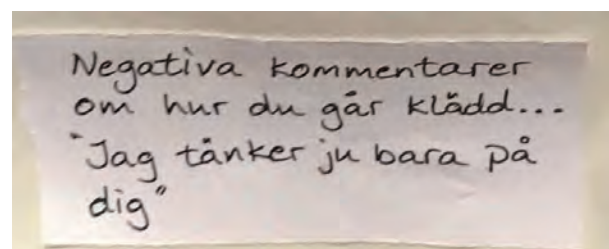 Negativa kommentarer
om hur du går klädd...
"Jag tänker ju bara på
dig"